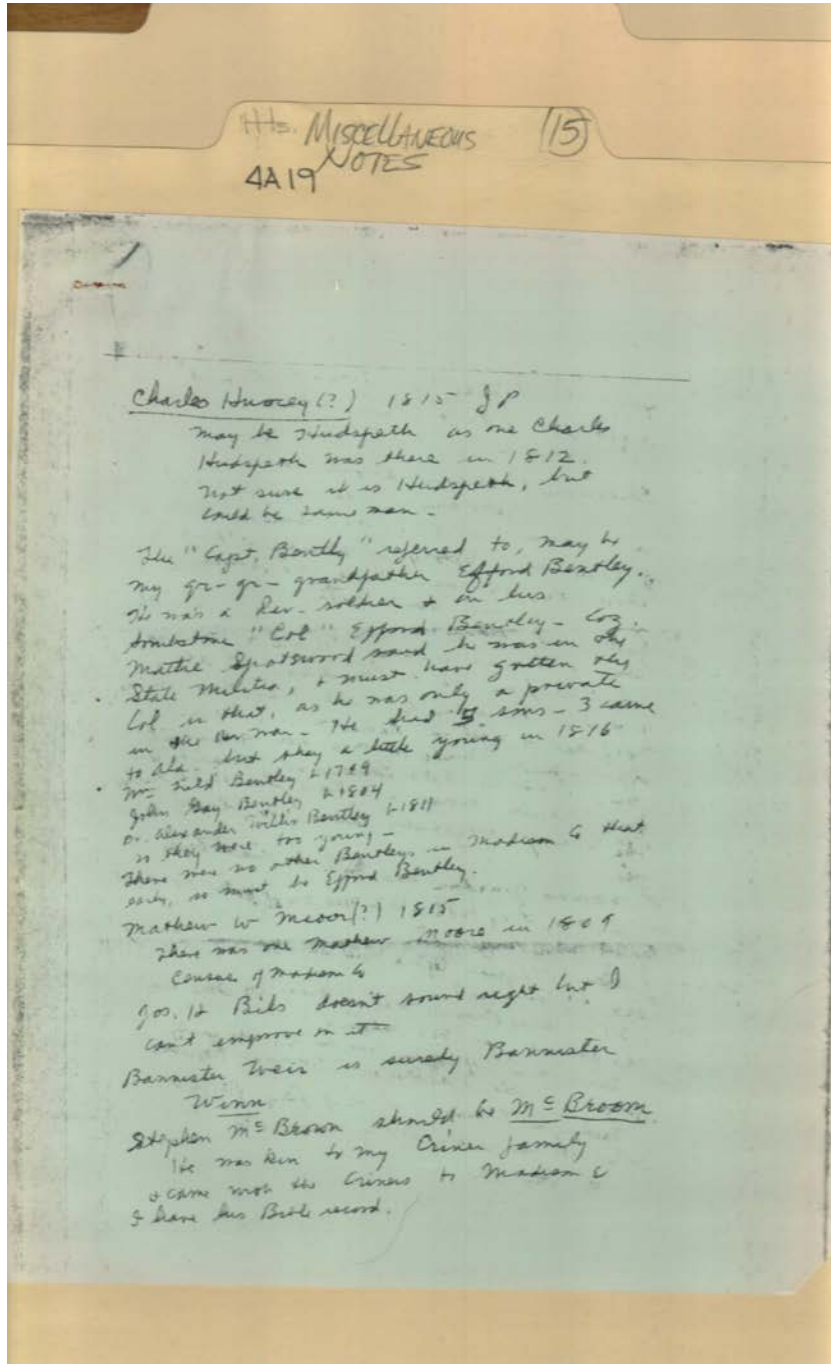 Hts. MISCELLANEOUS (15)
NOTES
4A19
1
Charles Huorey(?) 1815 JP
may be Hudspeth as one Charles
Hudspeth was there in 1812.
not sure it is Hudspeth, but
could be same man -
The "Capt. Bently" referred to, may be
my gr-gr- grandfather Efford Bentley.
He was a Rev. soldier & on his
tombstone "Col" Efford Bentley - Coz.
Mattie Spotswood said he was in the
State Militia, & must have gotten the
Col in that, as he was only a private
in the Rev. War - He had 5 sons - 3 came
to Ala. but they a little young in 1816
Wm Field Bentley b 1799
John Gay Bentley b 1804
Dr. Alexander Willis Bentley b 1811
so they were too young -
There were no other Bentleys in Madison Co that
early, so must be Efford Bentley.
Mathew W (?) 1815
There was one Mathew Moore in 1809
Census of Madison Co
Jos. H Bibs doesn't sound right but I
can't improve on it
Bannister Weir is surely Bannister
Winn
Stephen Mc Brown should be Mc Broom
He was kin to my Criner family
& came with the Criners to Madison C
I have his Bible record.